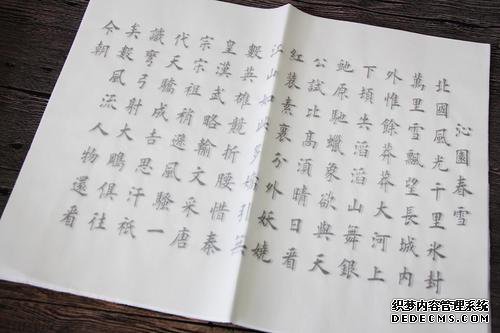 沁園春雪
北國風光千里氷封
萬里雪飄望長城内
外惟餘莽莽大河上
下頓失滔滔山舞銀
蛇原馳蠟象欲與天
公試比高須晴日看
紅裝素裹分外妖嬈
江山如此多嬌引無
數英雄競折腰惜秦
皇漢武略輸文采唐
宗宋祖稍遜風騷一
代天驕成吉思汗祇
識彎弓射大鵰俱往
矣數風流人物還看
今朝
织梦内容管理系统
DEDECMS.COM